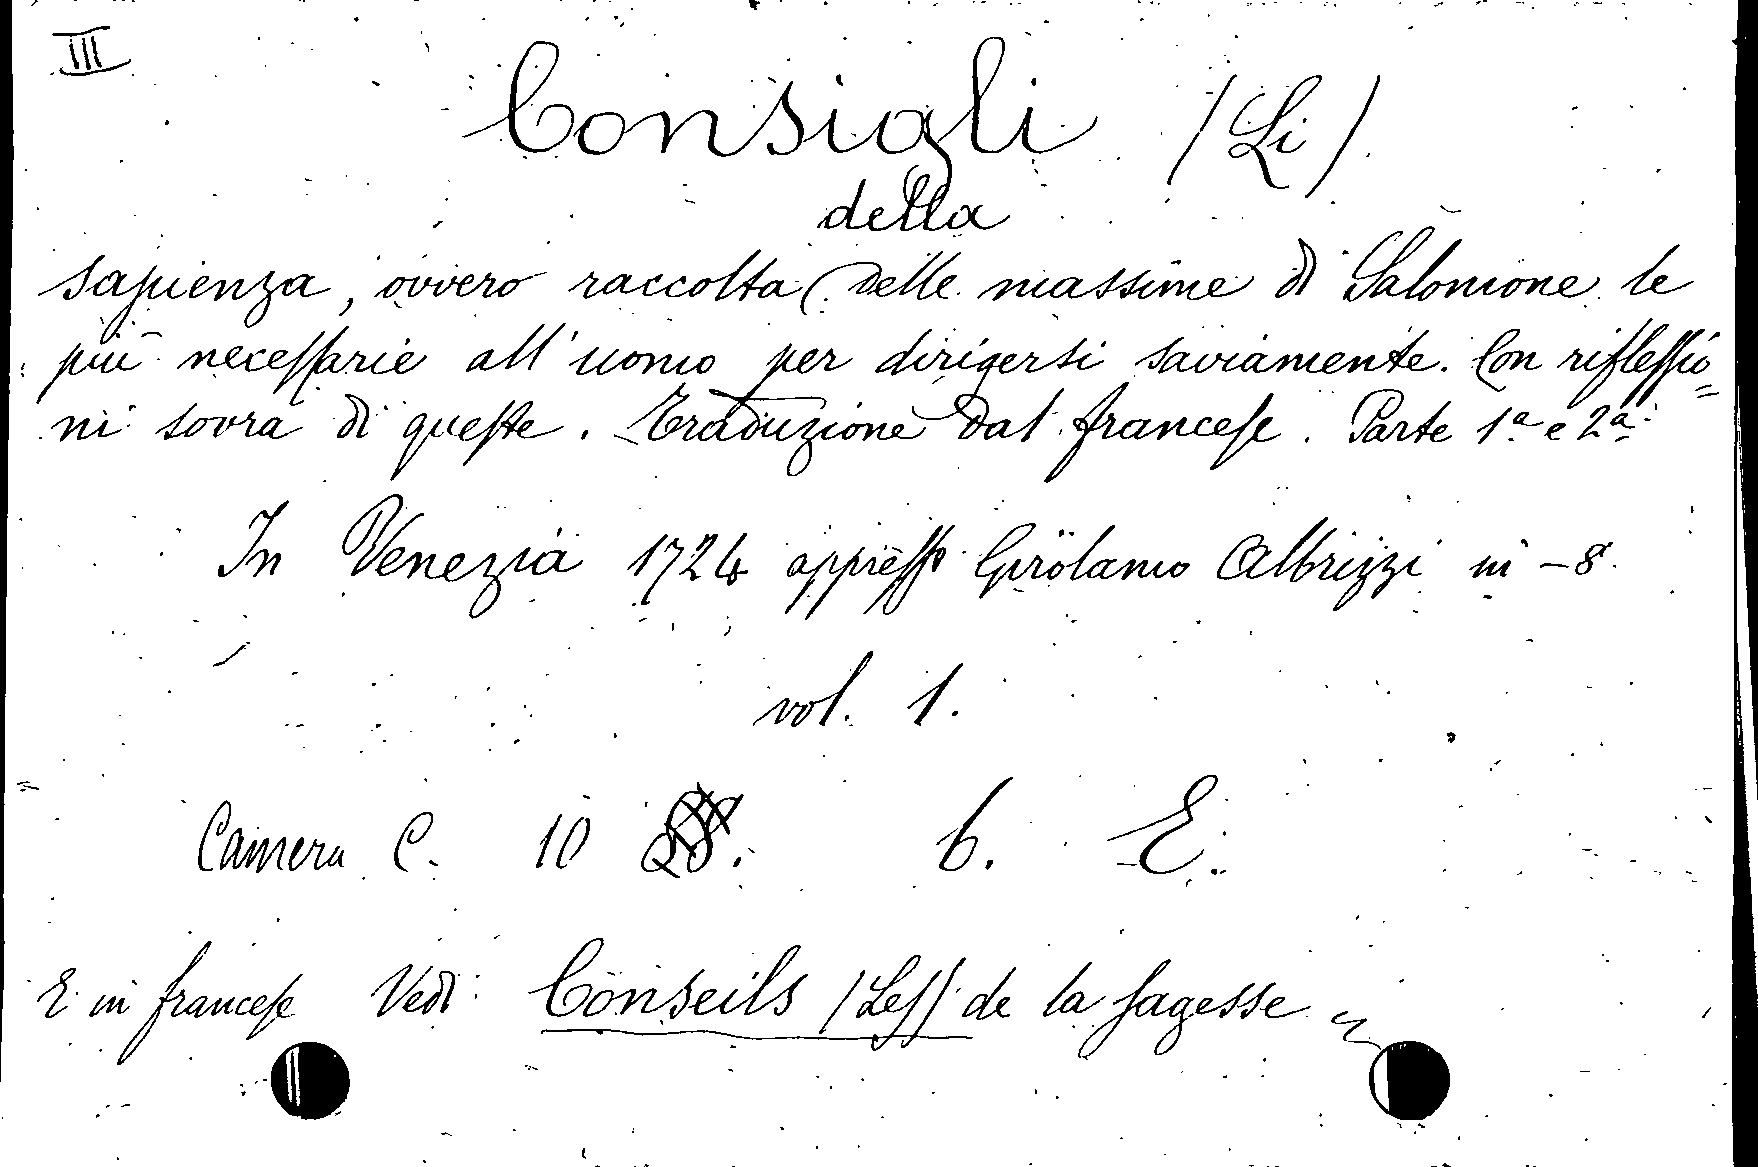 III
Consigli /Li/
della
sapienza, ovvero raccolta delle massime di Salomone le
più necessarie all'uomo per dirigersi saviamente. Con riflessio=
ni sovra di queste. Traduzione dal francese. Parte 1ª e 2ª
In Venezia 1724 appresso Girolamo Albrizzi in-8.
vol. 1.
Camera C. 10 6. E.
E in francese Vedi Conseils /Les/ de la sagesse